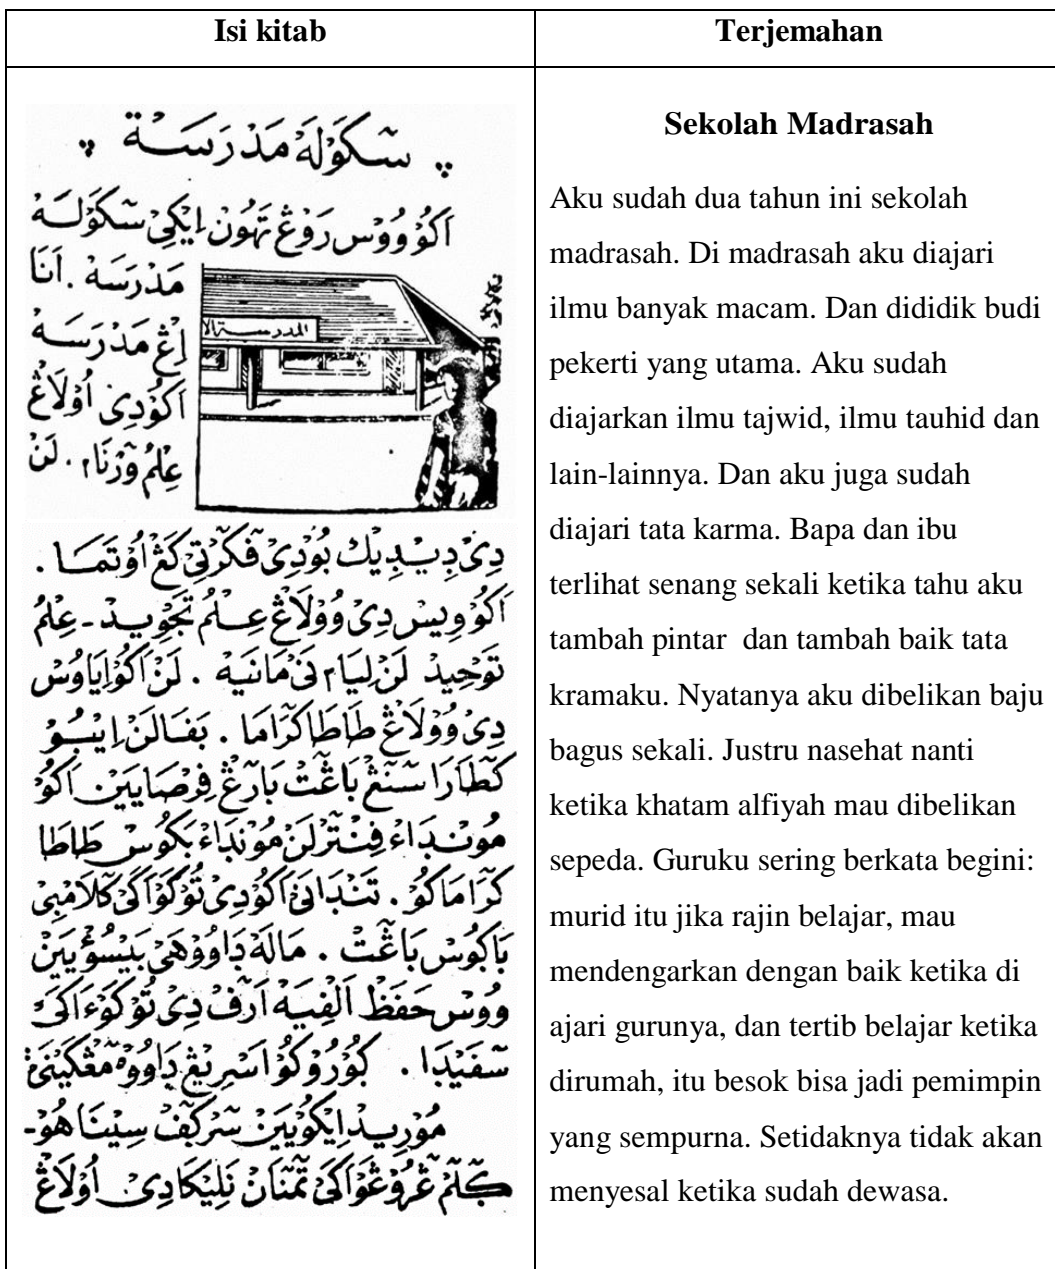 Isi kitab
سكَوْلَهْ مَدْرَسَة
اَكُوْ وُوْس رَوْڠْ تَهُوْن اِيْكِيْ سكَوْلَهْ
مَدْرَسَهْ . اَنَا
اِڠْ مَدْرَسَهْ
اَكُوْدِيْ اُوْلَاڠْ
عِلْمُ وَرْنَا٢ . لَنْ
المدرسة الا
دِيْ دِيْدِيْك بُوْدِيْ فَكَرْتِيْ كَڠْ اُوْتَمَا .
اَكُوْ وِيْس دِيْ وُوْلَاڠْ عِلْمُ تَجْوِيْد - عِلْمُ
تَوْحِيْد لَنْ لِيَا٢ نَيْ مَانَيْهْ . لَنْ اَكُوْ اِيَا وُوْس
دِيْ وُوْلَاڠْ طَاطَا كْرَامَا . بَفَا لَنْ اِيْبُوْ
كَطَارَا سَنَڠْ بَاڠَتْ بَارَڠْ فِرْصَا يَيْن اَكُوْ
مُوْنْدَاءْ فِنْتَرْ لَنْ مُوْنْدَاءْ بَكُوْس طَاطَا
كْرَامَاكُوْ . تَنْدَانَيْ اَكُوْدِيْ تُوْكَوْاَكَيْ كْلَامْبِيْ
بَاكُوْس بَاڠَتْ . مَالَهْ دَاوُوْهَيْ بَيْسُوْءْ يَيْن
وُوْس حَفَظْ اَلْفِيَهْ اَرَفْ دِيْ تُوْكَوْءَاكَيْ
سْفَيْدَا . كُوْرُوْكُوْ اَسْرِيْڠْ دَاوُوْهْ مَڠْكَيْنَيْ
مُوْرِيْد اِيْكُوْ يَيْن سْرَكَفْ سِيْنَاهُوْ-
كَلَمْ ڠْرُوْڠَوْاَكَيْ تَمَنَانْ نَلِيْكَا دِيْ اُوْلَاڠْ
Terjemahan
Sekolah Madrasah
Aku sudah dua tahun ini sekolah
madrasah. Di madrasah aku diajari
ilmu banyak macam. Dan dididik budi
pekerti yang utama. Aku sudah
diajarkan ilmu tajwid, ilmu tauhid dan
lain-lainnya. Dan aku juga sudah
diajari tata karma. Bapa dan ibu
terlihat senang sekali ketika tahu aku
tambah pintar dan tambah baik tata
kramaku. Nyatanya aku dibelikan baju
bagus sekali. Justru nasehat nanti
ketika khatam alfiyah mau dibelikan
sepeda. Guruku sering berkata begini:
murid itu jika rajin belajar, mau
mendengarkan dengan baik ketika di
ajari gurunya, dan tertib belajar ketika
dirumah, itu besok bisa jadi pemimpin
yang sempurna. Setidaknya tidak akan
menyesal ketika sudah dewasa.